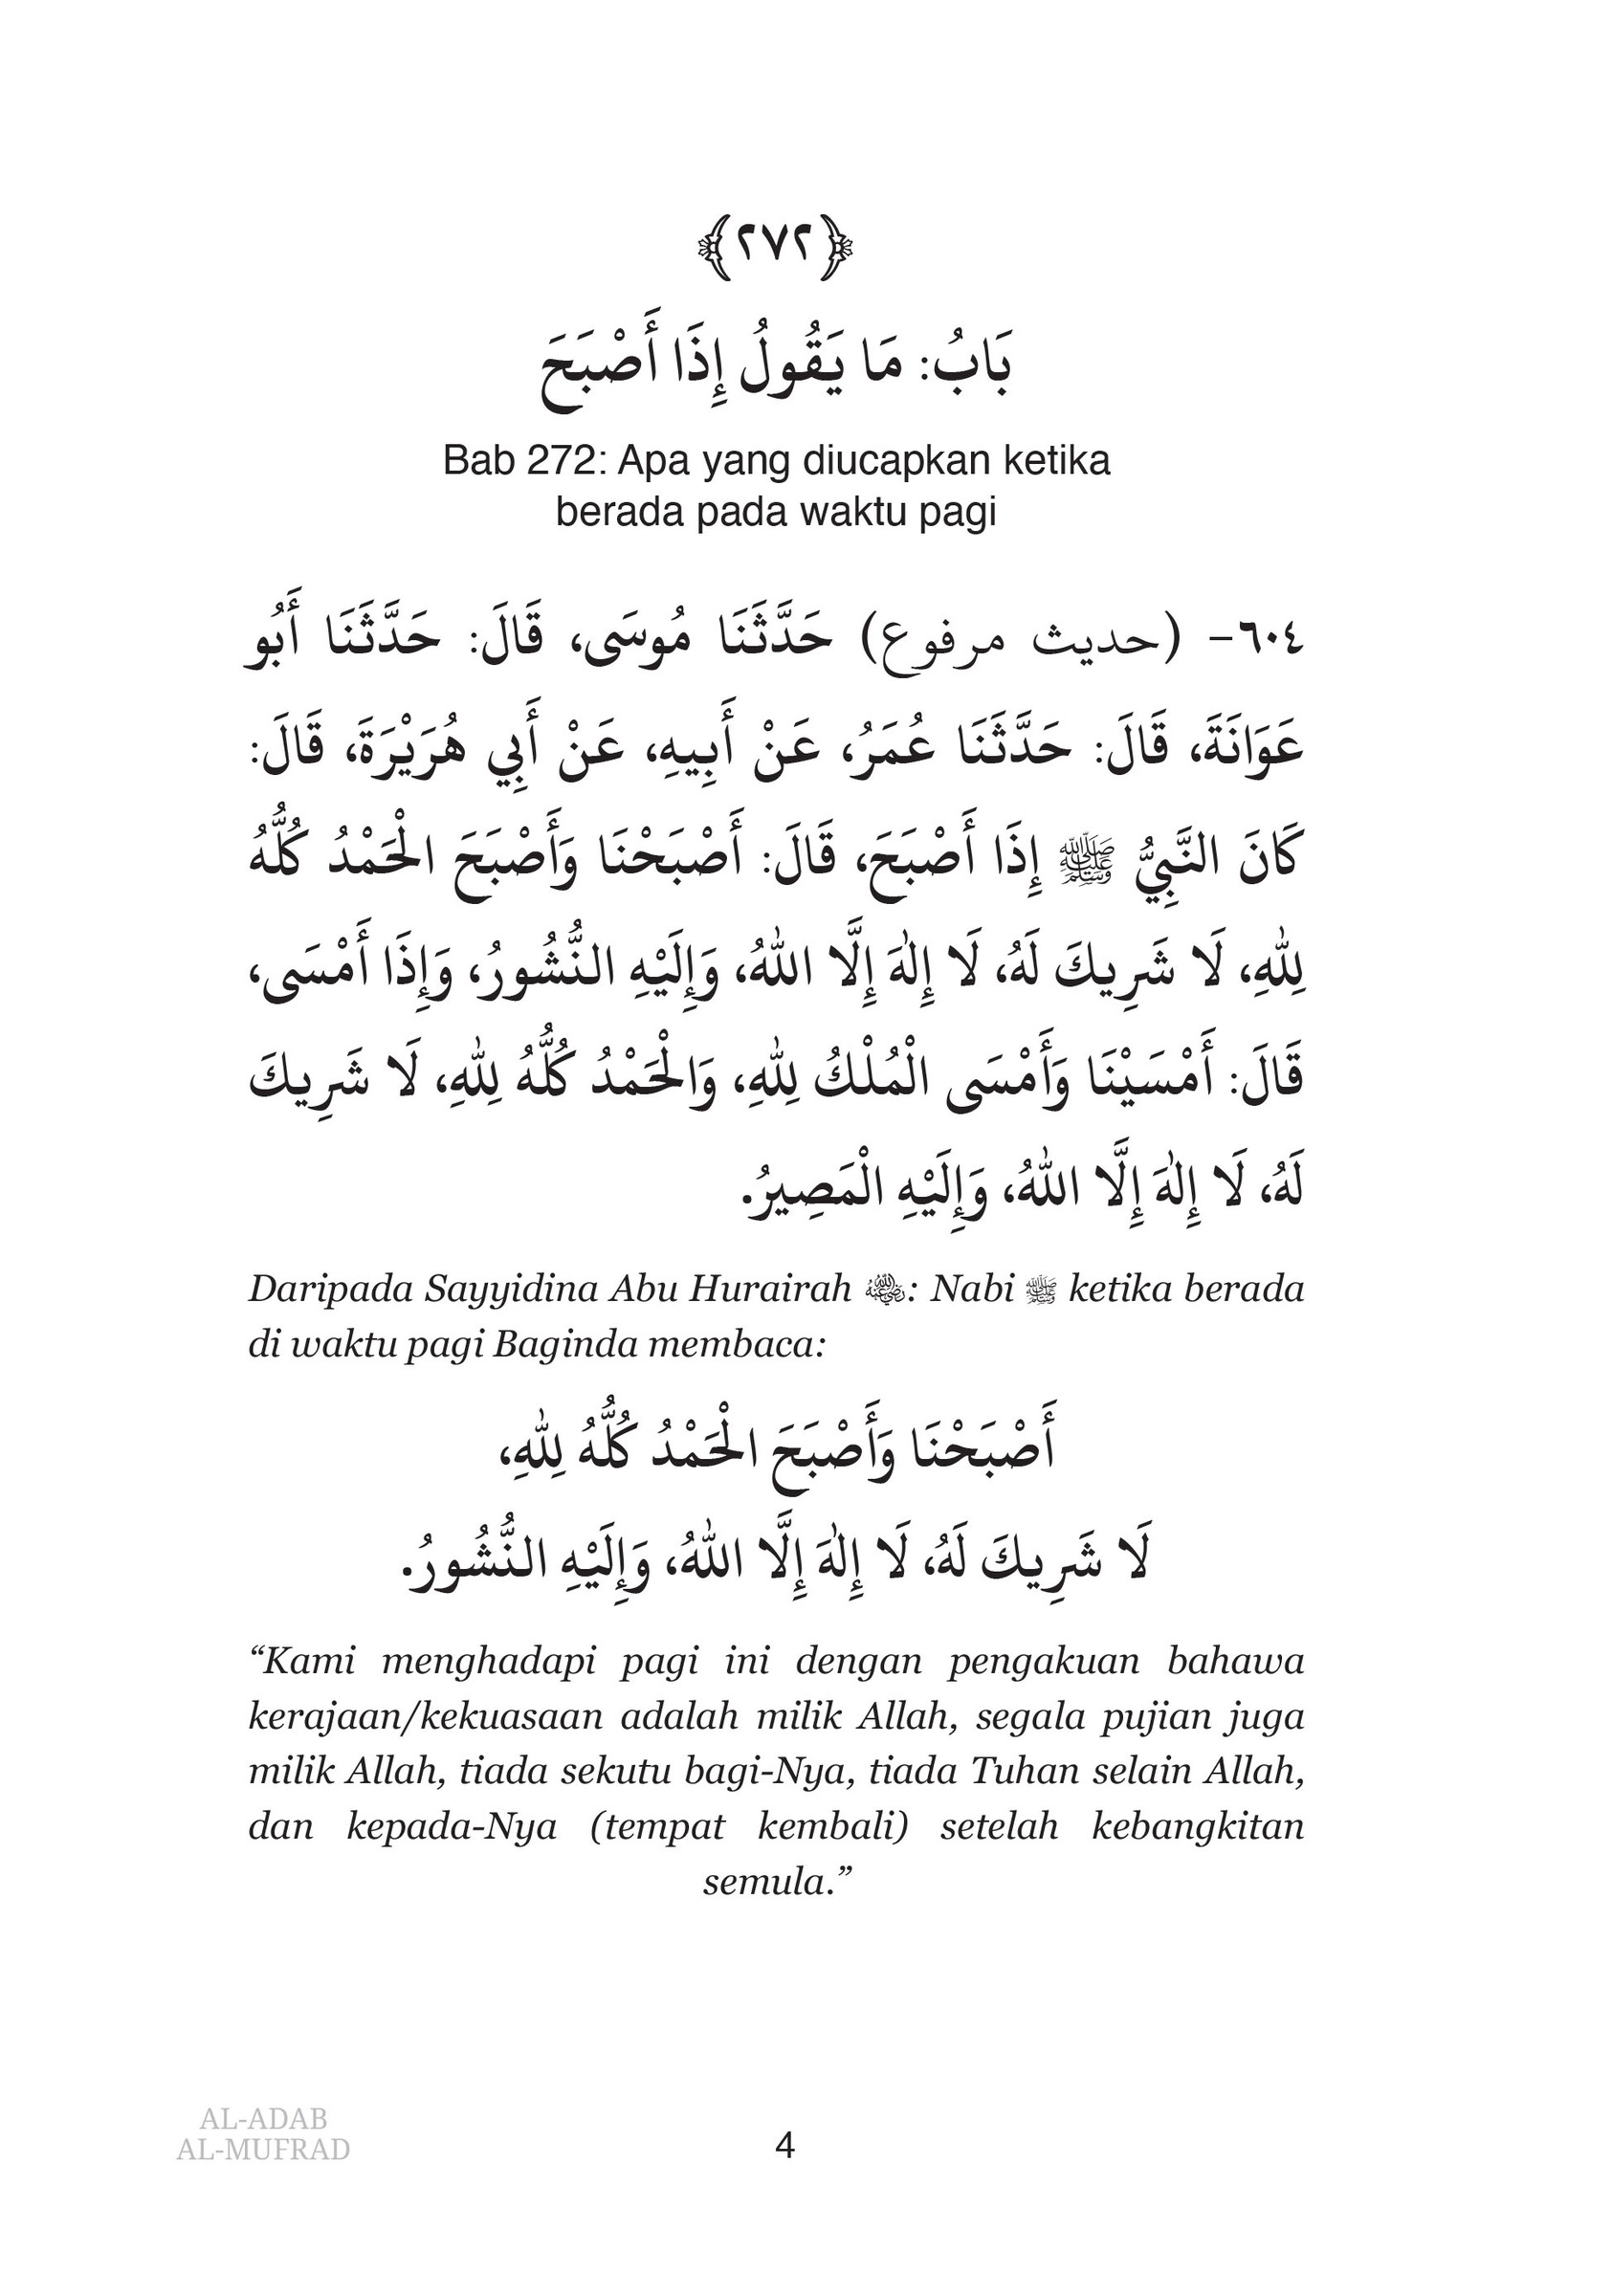 ﴿٢٧٢﴾
بَابُ: مَا يَقُولُ إِذَا أَصْبَحَ
Bab 272: Apa yang diucapkan ketika
berada pada waktu pagi
٦٠٤- (حديث مرفوع) حَدَّثَنَا مُوسَى، قَالَ: حَدَّثَنَا أَبُو
عَوَانَةَ، قَالَ: حَدَّثَنَا عُمَرُ، عَنْ أَبِيهِ، عَنْ أَبِي هُرَيْرَةَ، قَالَ:
كَانَ النَّبِيُّ ﷺ إِذَا أَصْبَحَ، قَالَ: أَصْبَحْنَا وَأَصْبَحَ الْحَمْدُ كُلُّهُ
لِلّٰهِ، لَا شَرِيكَ لَهُ، لَا إِلٰهَ إِلَّا اللّٰهُ، وَإِلَيْهِ النُّشُورُ، وَإِذَا أَمْسَى،
قَالَ: أَمْسَيْنَا وَأَمْسَى الْمُلْكُ لِلّٰهِ، وَالْحَمْدُ كُلُّهُ لِلّٰهِ، لَا شَرِيكَ
لَهُ، لَا إِلٰهَ إِلَّا اللّٰهُ، وَإِلَيْهِ الْمَصِيرُ.
Daripada Sayyidina Abu Hurairah رضي الله عنه: Nabi ﷺ ketika berada
di waktu pagi Baginda membaca:
أَصْبَحْنَا وَأَصْبَحَ الْحَمْدُ كُلُّهُ لِلّٰهِ،
لَا شَرِيكَ لَهُ، لَا إِلٰهَ إِلَّا اللّٰهُ، وَإِلَيْهِ النُّشُورُ.
“Kami menghadapi pagi ini dengan pengakuan bahawa
kerajaan/kekuasaan adalah milik Allah, segala pujian juga
milik Allah, tiada sekutu bagi-Nya, tiada Tuhan selain Allah,
dan kepada-Nya (tempat kembali) setelah kebangkitan
semula.”
AL-ADAB
AL-MUFRAD
4